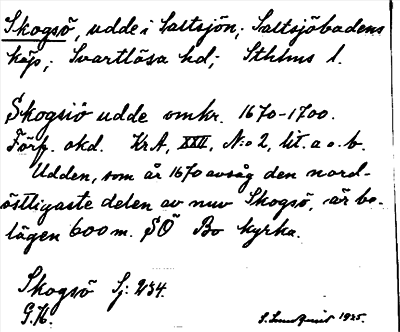 Skogsö, udde i Saltsjön; Saltsjöbadens
köp; Svartlösa hd; Sthlms l.
Skogsiö udde omkr. 1670-1700.
Förf. okd. KrA, XXII, N:o 2, lit. a o. b.
Udden, som år 1670 avsåg den nord-
östligaste delen av nuv Skogsö, är be-
lägen 600 m. SÖ Bo kyrka.
Skogsö Sj: 234.
G.K.
S. Lundqvist 1925.